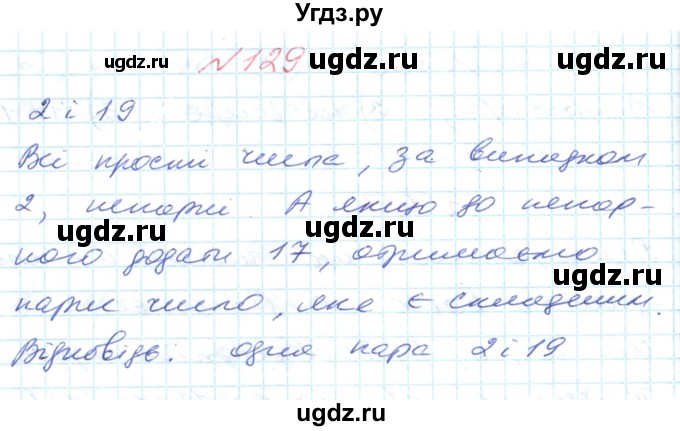 Угдз.ру
ugdz.ru № 129 ugdz.ru ugdz.ru
2 і 19
Всі прості числа, за випадком
2, непарні. А якщо до непар-
ugdz.ru ugdz.ru
ного додати 17, отримаємо
ugdz.ru
парне число, яке є складеним.
ugdz.ru ugdz.ru
Відповідь: одна пара 2 і 19
ugdz.ru